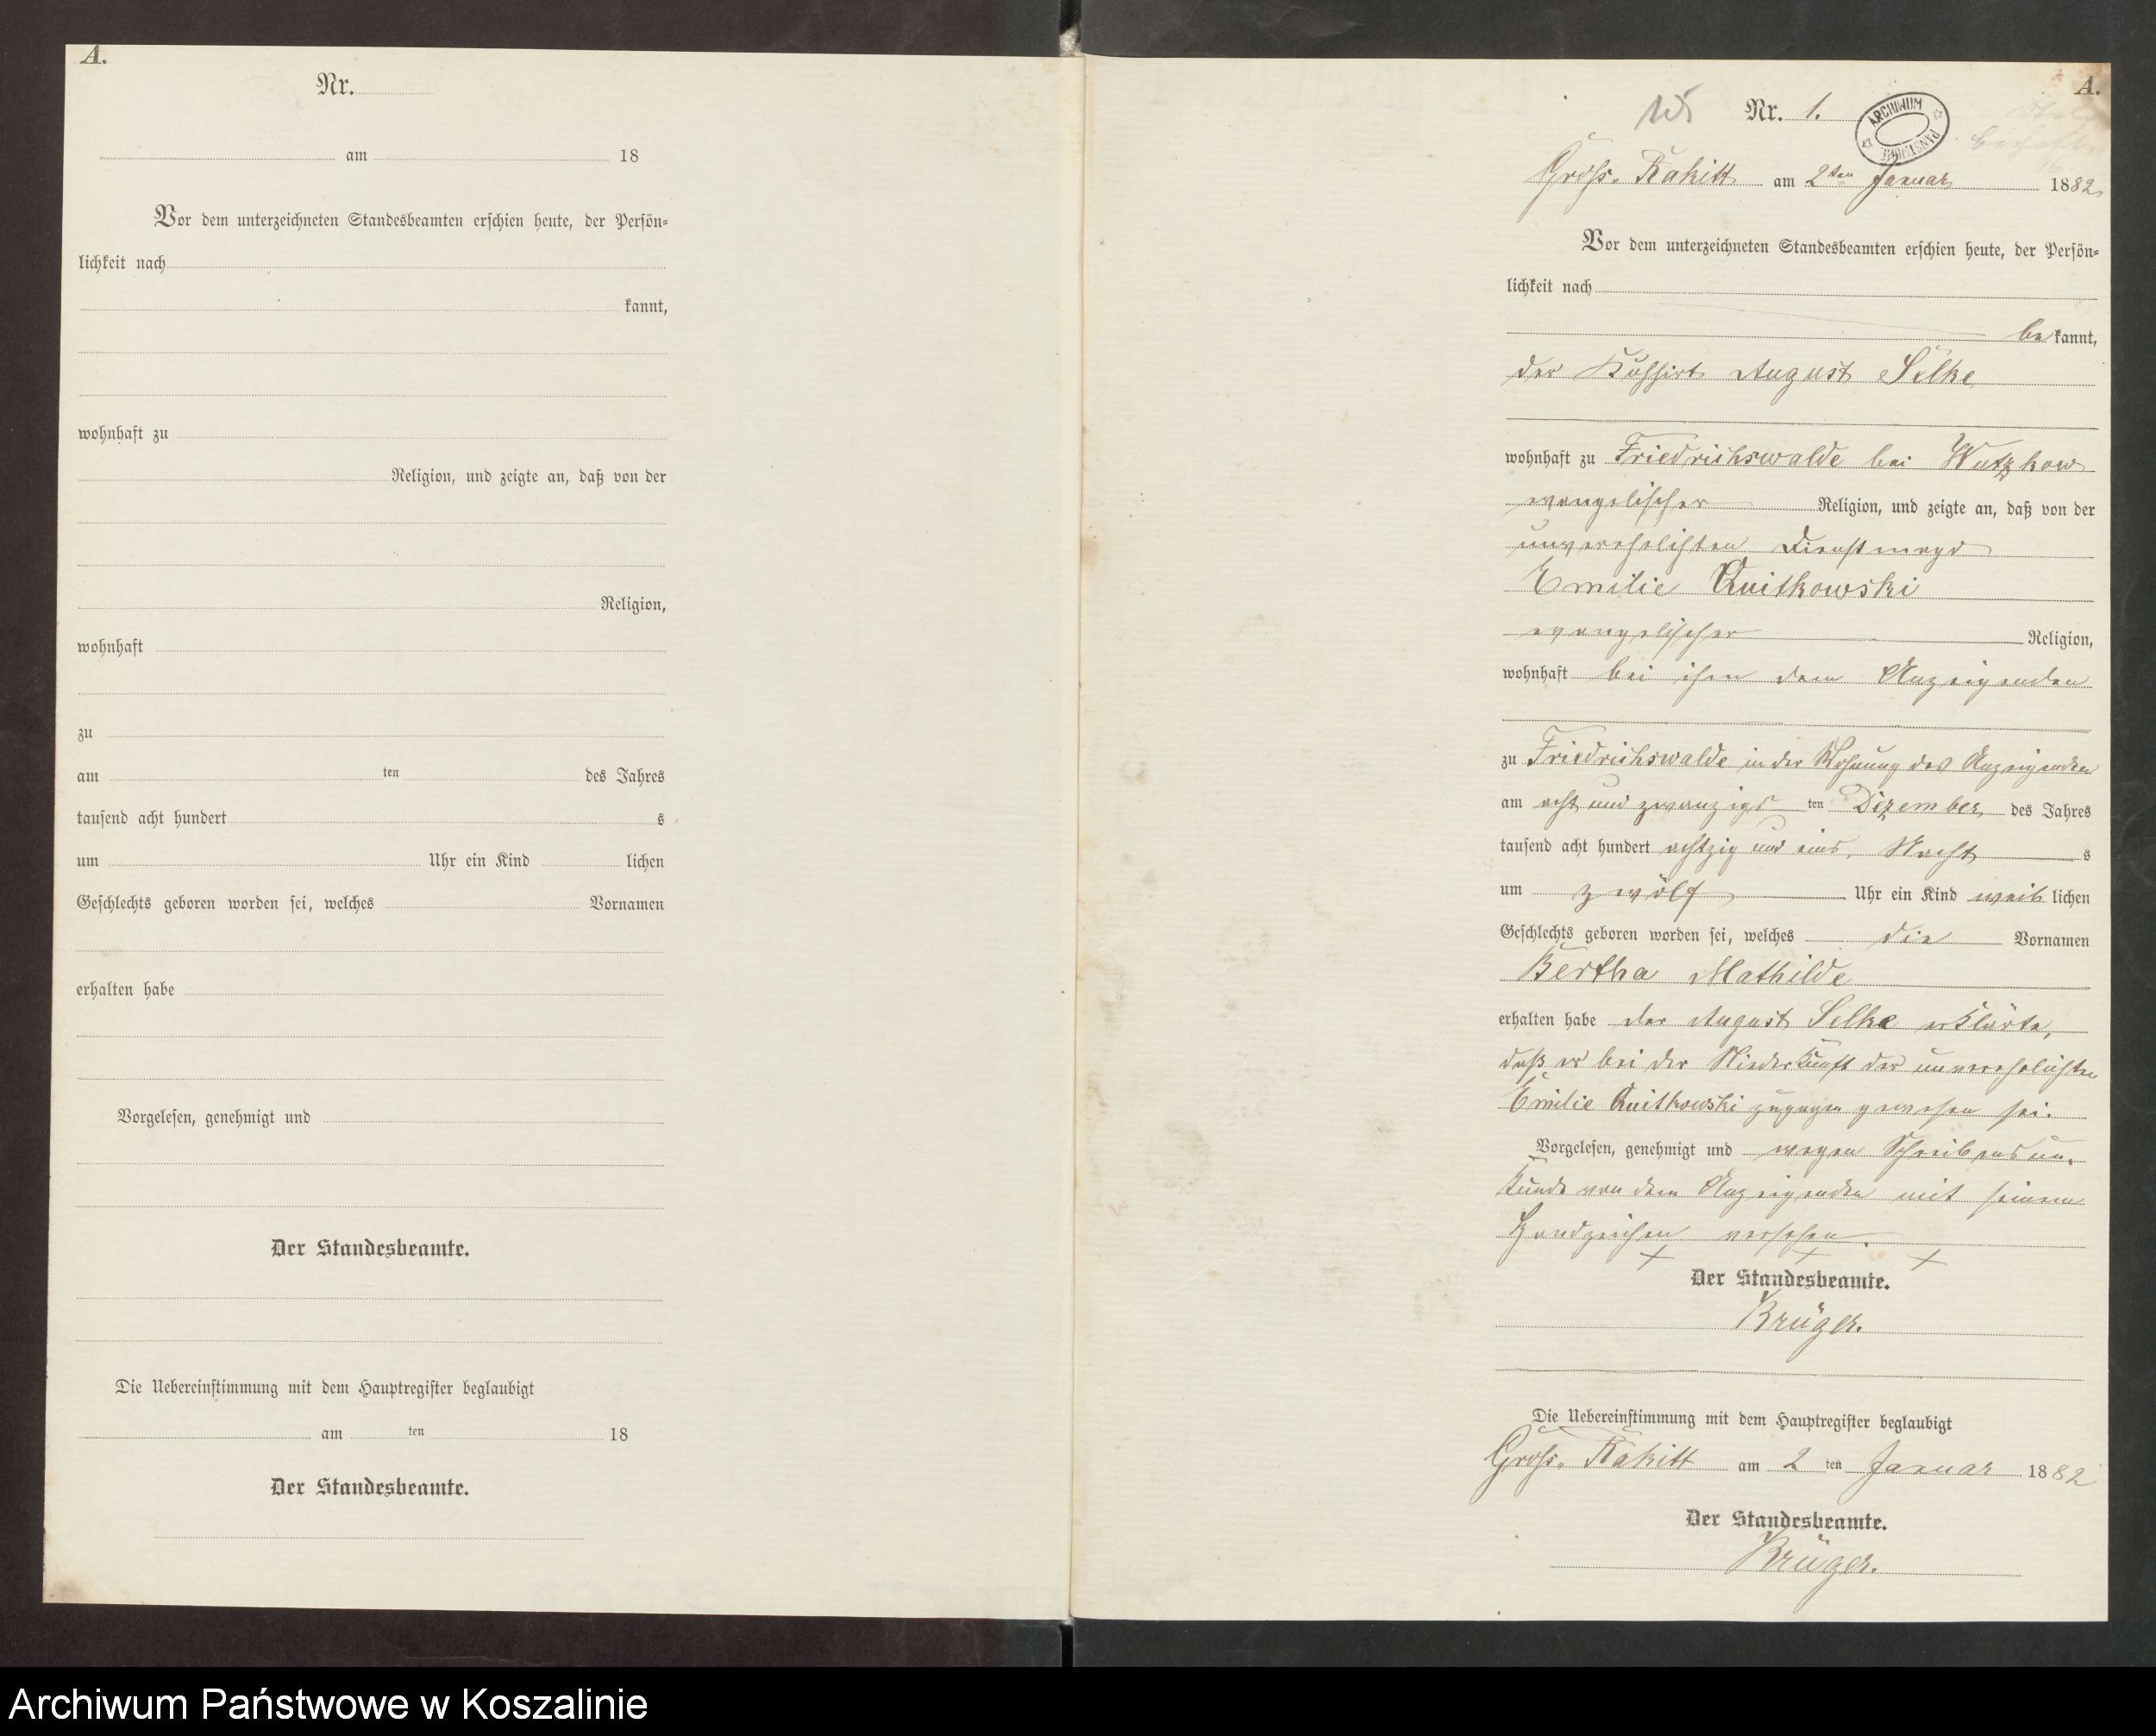 A.
Nr.
am 18
Vor dem unterzeichneten Standesbeamten erschien heute, der Persön-
lichkeit nach
kannt,
wohnhaft zu
Religion, und zeigte an, daß von der
Religion,
wohnhaft
zu
am ten des Jahres
tausend acht hundert s
um Uhr ein Kind lichen
Geschlechts geboren worden sei, welches Vornamen
erhalten habe
Vorgelesen, genehmigt und
Der Standesbeamte.
Die Uebereinstimmung mit dem Hauptregister beglaubigt
am ten 18
Der Standesbeamte.
A.
Nr. 1.
ARCHIWUM PAŃSTWOWE
Groß. Rakitt am 2ten Januar 1882
Vor dem unterzeichneten Standesbeamten erschien heute, der Persön-
lichkeit nach
be kannt,
der Kuhhirt August Selke
wohnhaft zu Friedrichswalde bei Wutzkow
evangelischer Religion, und zeigte an, daß von der
unverehelichten Dienstmagd
Emilie Quitkowski
evangelischer Religion,
wohnhaft bei ihm dem Anzeigenden
zu Friedrichswalde in der Wohnung des Anzeigenden
am acht und zwanzigs ten Dezember des Jahres
tausend acht hundert achtzig und eins, Nacht s
um zwölf Uhr ein Kind weib lichen
Geschlechts geboren worden sei, welches die Vornamen
Bertha Mathilde
erhalten habe der August Selke erklärte,
daß er bei der Niederkunft der unverehelichten
Emilie Quitkowski zugegen gewesen sei.
Vorgelesen, genehmigt und wegen Schreibensun-
kunde von dem Anzeigenden mit seinem
Handzeichen versehen.
+ + +
Der Standesbeamte.
Krüger.
Die Uebereinstimmung mit dem Hauptregister beglaubigt
Groß. Rakitt am 2 ten Januar 1882
Der Standesbeamte.
Krüger.
Archiwum Państwowe w Koszalinie